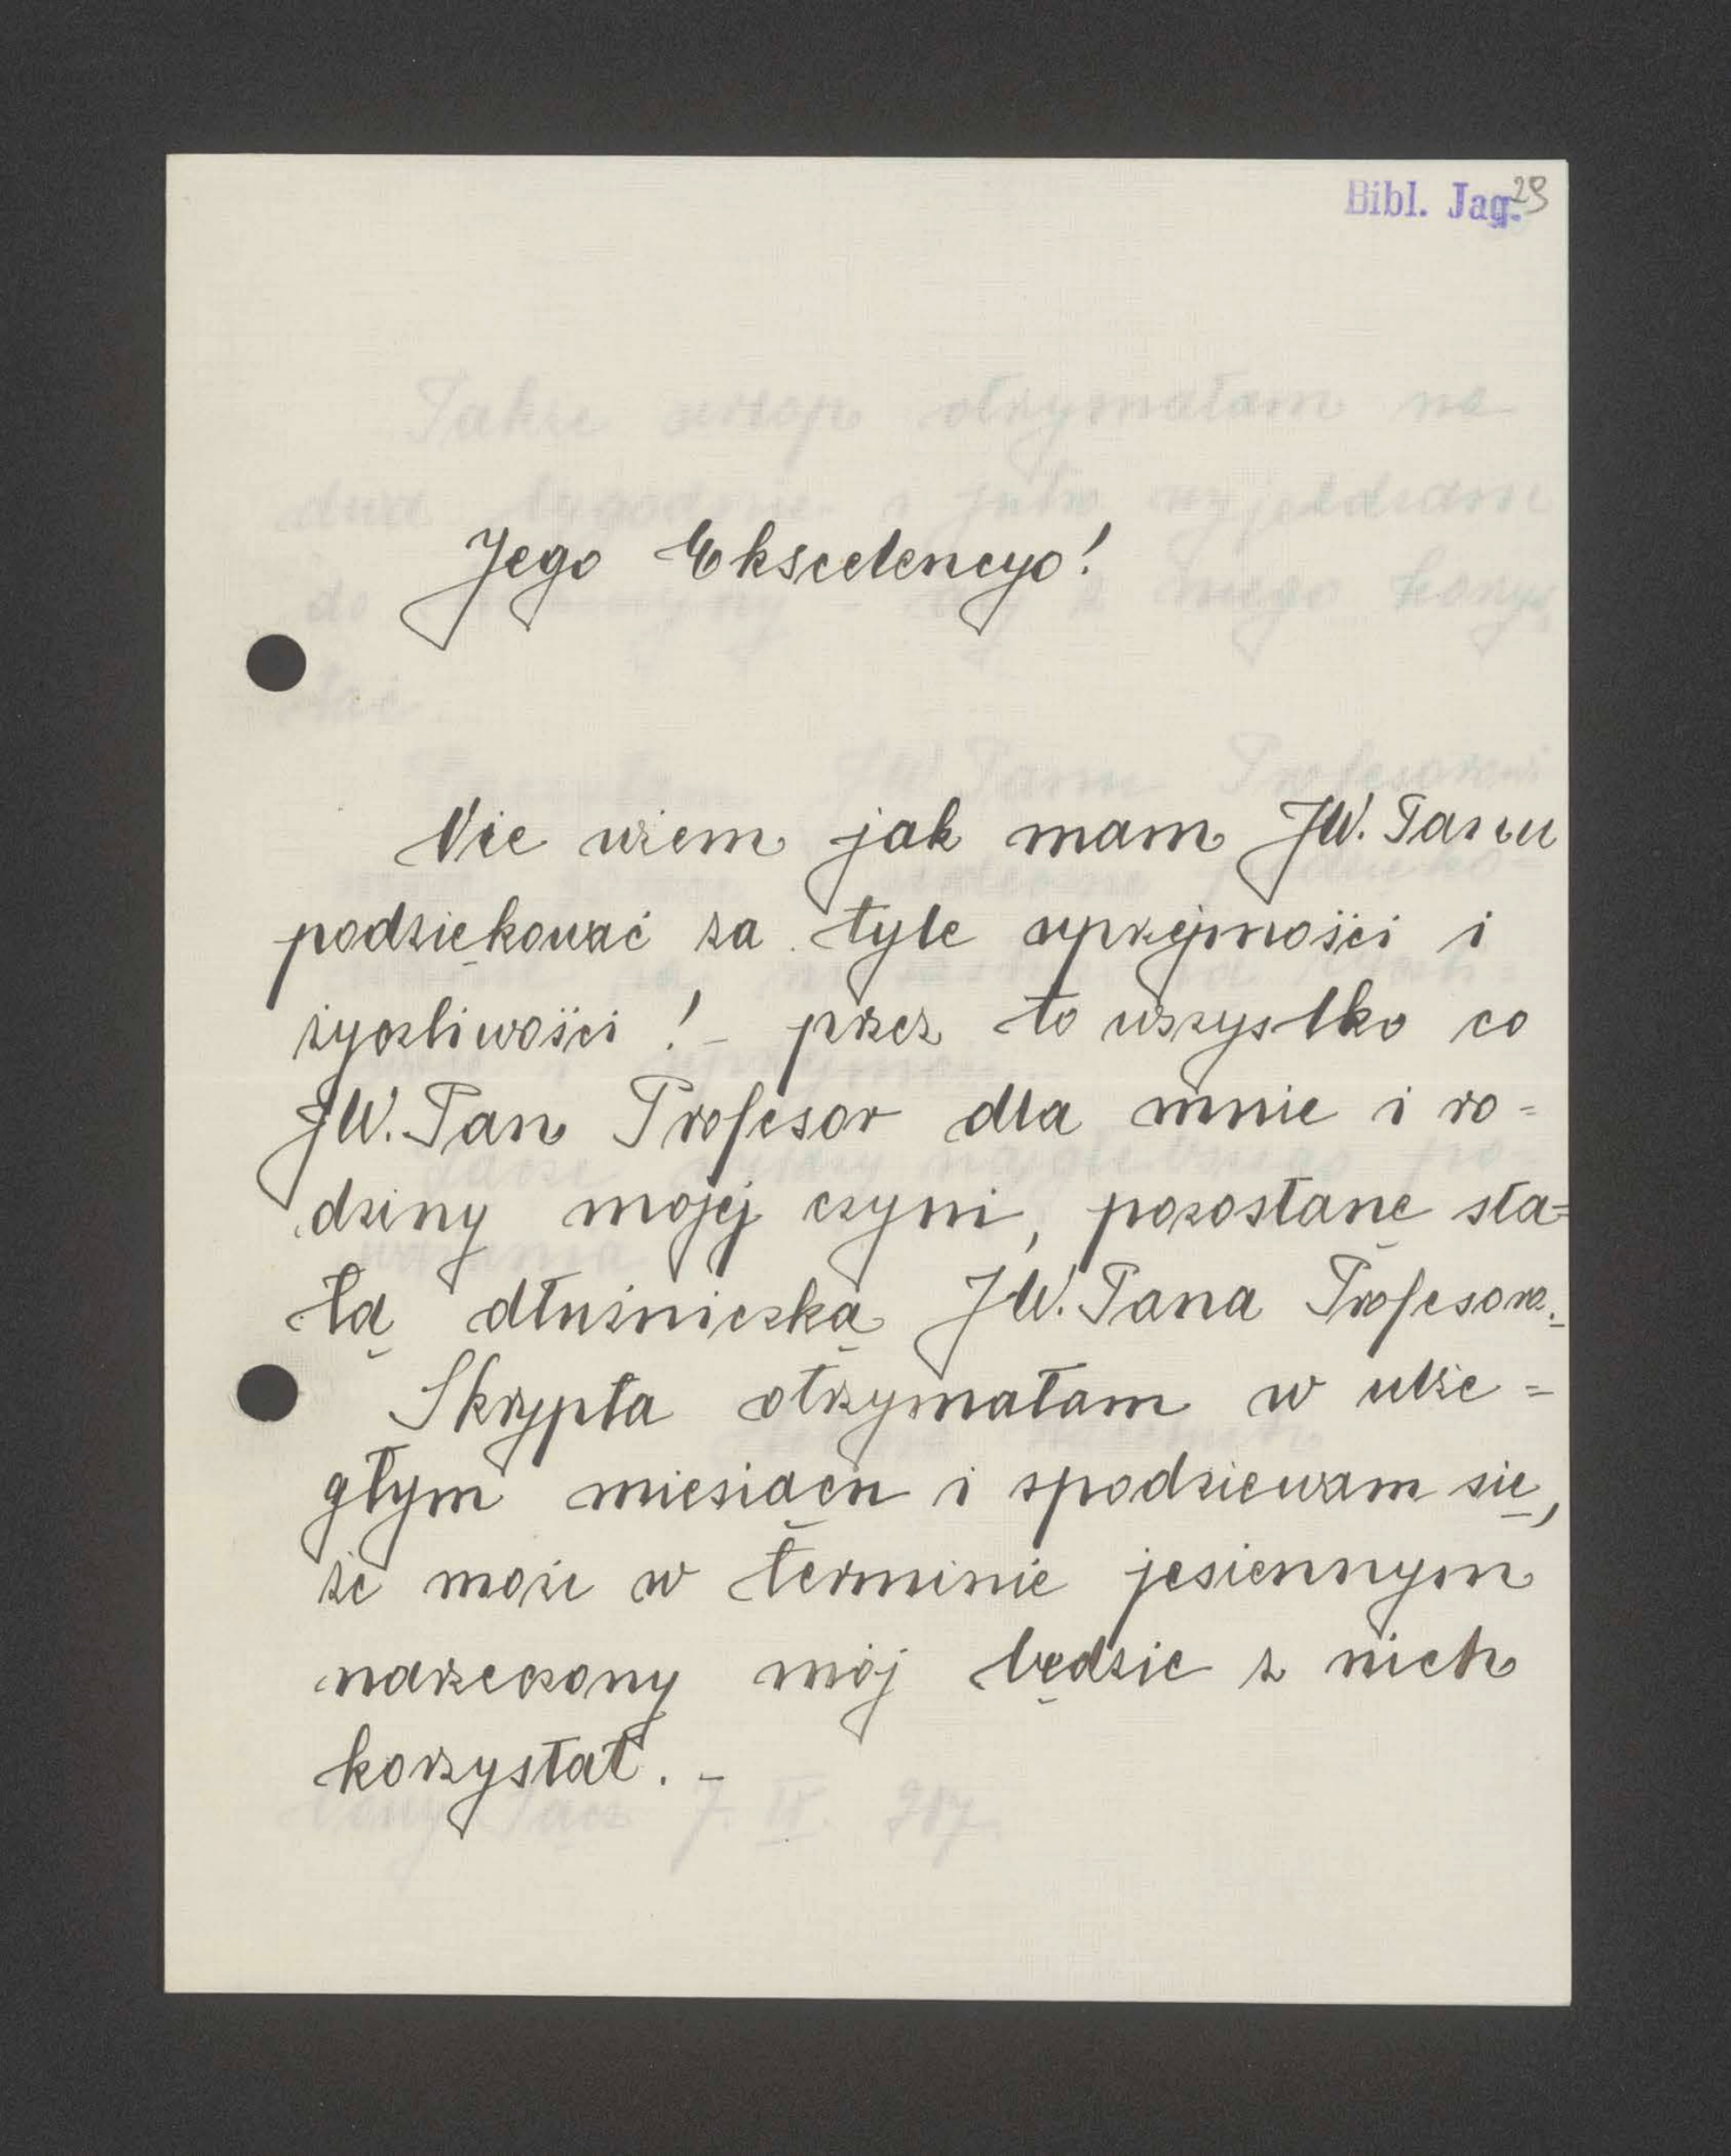 Bibl. Jag. 29
Jego Ekscelencyo!
Nie wiem jak mam JW. Panu
podziękować za tyle uprzejmości i
życzliwości! – przez to wszystko co
JW. Pan Profesor dla mnie i ro=
dziny mojej czyni, pozostanę sta=
łą dłużniczką JW. Pana Profesora.
Skrypta otrzymałam w ubie=
głym miesiącu i spodziewam się,
że może w terminie jesiennym
narzeczony mój będzie z nich
korzystał. –